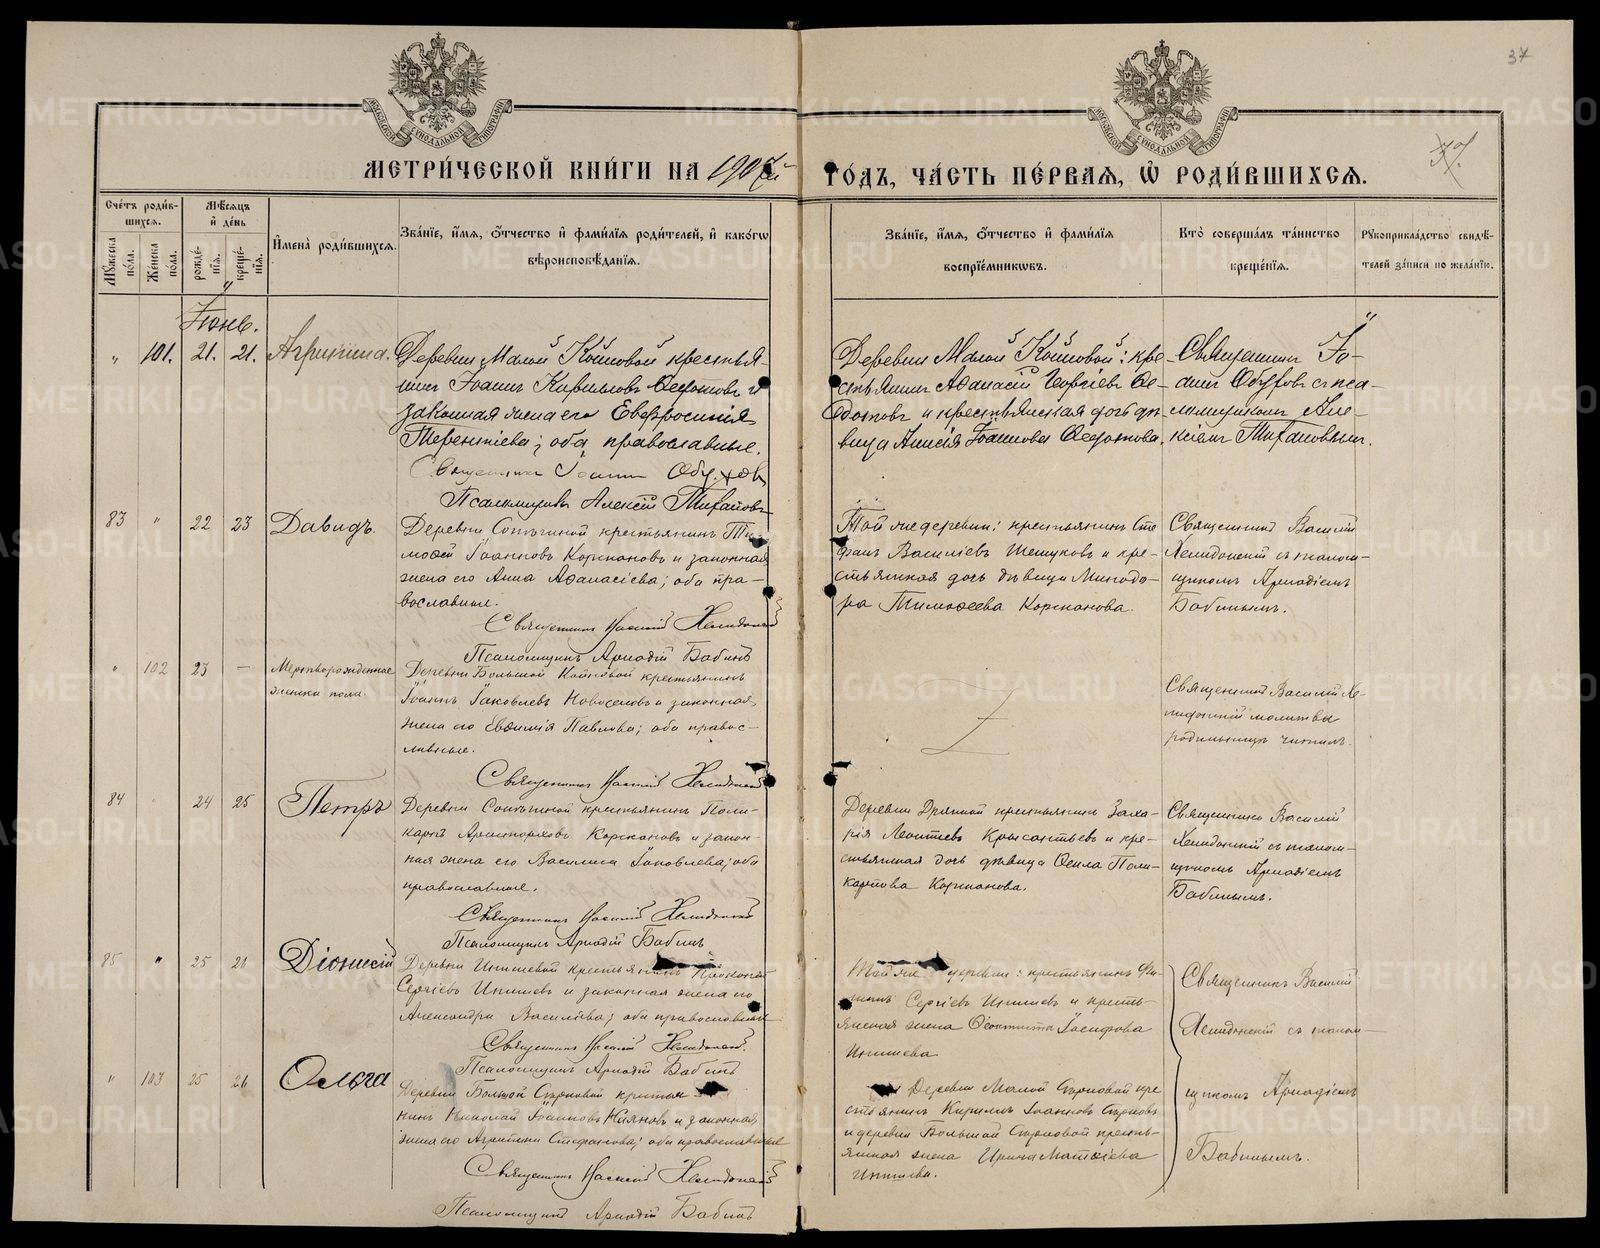 37
37.
МОСКОВСКОЙ СѴНОДАЛЬНОЙ ТИПОГРАФІИ
МОСКОВСКОЙ СѴНОДАЛЬНОЙ ТИПОГРАФІИ
МЕТРИ́ЧЕСКОЙ КНИ́ГИ НА 1907й ГО́ДЪ, ЧА́СТЬ ПЕ́РВАѦ, Ѽ РОДИ́ВШИХСѦ.
Сче́тъ роди́в-
шихсѧ.
Мꙋжеска по́ла.
Же́нска по́ла.
Мѣ́сѧцъ
и҆ де́нь
рожде́нїѧ.
креще́нїѧ.
И҆мена̀ роди́вшихсѧ.
Зва́нїе, и҆́мѧ, ѻ҆́тчество и҆ фами́лїѧ роди́телей, и҆ како́гѡ
вѣроисповѣ́данїѧ.
Зва́нїе, и҆́мѧ, ѻ҆́тчество и҆ фами́лїѧ
воспрїе́мникѡвъ.
Кто̀ соверша́лъ та́инство
креще́нїѧ.
Рꙋкоприкла́дство свидѣ́-
телей за́писи по жела́нїю.
Іюнь.
" 101. 21. 21. Агрипина.
Деревни Малой Койновой крестья-
нинъ Іоаннъ Кириловъ Ѳедотовъ и
законная жена его Евфросинія
Терентіева; оба православные.
Священникъ Іоаннъ Обуховъ
Псаломщикъ Алексій Тихановъ
Деревни Малой Койновой: кре-
стьянинъ Аѳанасій Георгіевъ Ѳе-
дотовъ и крестьянская дочь дѣ-
вица Анисія Іоаннова Ѳедотова.
Священникъ Іо-
аннъ Обуховъ съ пса-
ломщикомъ Але-
ксіемъ Тихановымъ.
83 " 22 23 Давидъ.
Деревни Сопѣгиной крестьянинъ Ти-
моѳей Іоанновъ Коржановъ и законная
жена его Анна Аѳанасіева; оба пра-
вославные.
Священникъ Василій Хелидонскій
Псаломщикъ Аркадій Бабинъ
Той же деревни: крестьянинъ Сте
фанъ Василіевъ Шешуковъ и кре-
стьянская дочь дѣвица Минодо-
ра Тимоѳеева Коржанова.
Священникъ Василій
Хелидонскій съ псалом-
щикомъ Аркадіемъ
Бабинымъ.
" 102 23 — Мертворожденное
женска пола.
Деревни Большой Койновой крестьянинъ
Іоаннъ Іаковлевъ Новоселовъ и законная
жена его Евѳимія Павлова; оба правос-
лавные.
Священникъ Василій Хелидонскій
Священникъ Василій Хе-
лидонскій молитвы
родильницѣ читалъ.
84 24 25 Петръ
Деревни Сопѣгиной крестьянинъ Поли-
карпъ Христофоровъ Коржановъ и закон-
ная жена его Василиса Іаковлева; оба
православные.
Священникъ Василій Хелидонскій
Псаломщикъ Аркадій Бабинъ
Деревни Дряной крестьянинъ Заха-
рія Леонтіевъ Крысантьевъ и кре-
стьянская дочь дѣвица Ѳекла Поли-
карпова Коржанова.
Священникъ Василій
Хелидонскій съ псалом-
щикомъ Аркадіемъ
Бабинымъ.
85 " 25 26 Діонисій
Деревни Инишевой крестьянинъ Прокопій
Сергіевъ Инишевъ и законная жена его
Александра Василіева; оба православные
Священникъ Василій Хелидонскій.
Псаломщикъ Аркадій Бабинъ
Той же деревни: крестьянинъ Фи-
липпъ Сергіевъ Инишевъ и кресть-
янская жена Ѳеоктиста Іосифова
Инишева
Священникъ Василій
Хелидонскій съ псалом-
щикомъ Аркадіемъ
Бабинымъ.
" 103 25 26 Ольга
Деревни Большой Сырковой крестья
нинъ Николай Іоанновъ и законная
жена его Агрипина Стефанова; оба православные
Священникъ Василій Хелидонскій
Псаломщикъ Аркадій Бабинъ
Деревни Малой Сырковой кре
стьянинъ Кириллъ Іоанновъ
и деревни Большой Сырковой кресть-
янская жена Ирина Матѳіева
Инишева.
METRIKI.GASO-URAL.RU